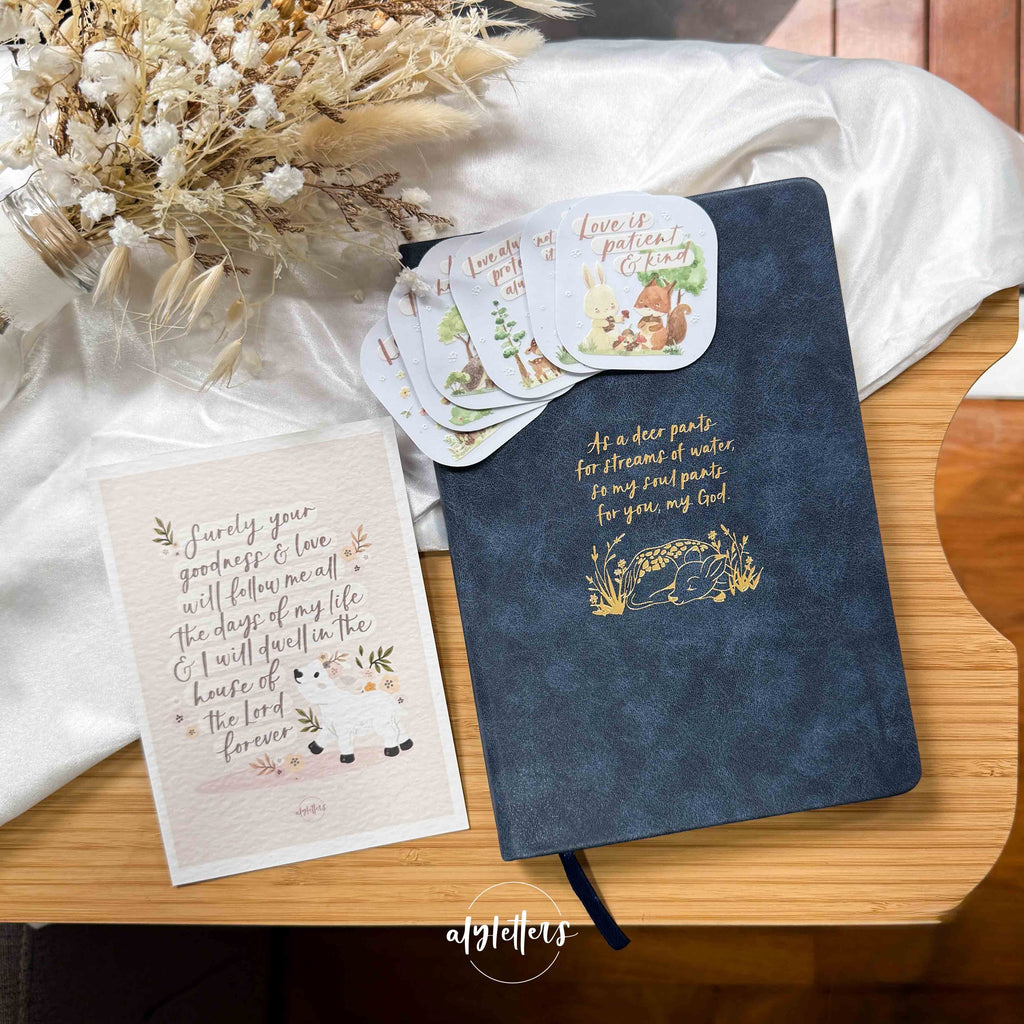 Love is
patient
& kind
Love
not
it
As a deer pants
for streams of water,
so my soul pants
for you, my God.
Surely your
goodness & love
will follow me all
the days of my life
& I will dwell in the
house of
the Lord
forever
alyletters
alyletters